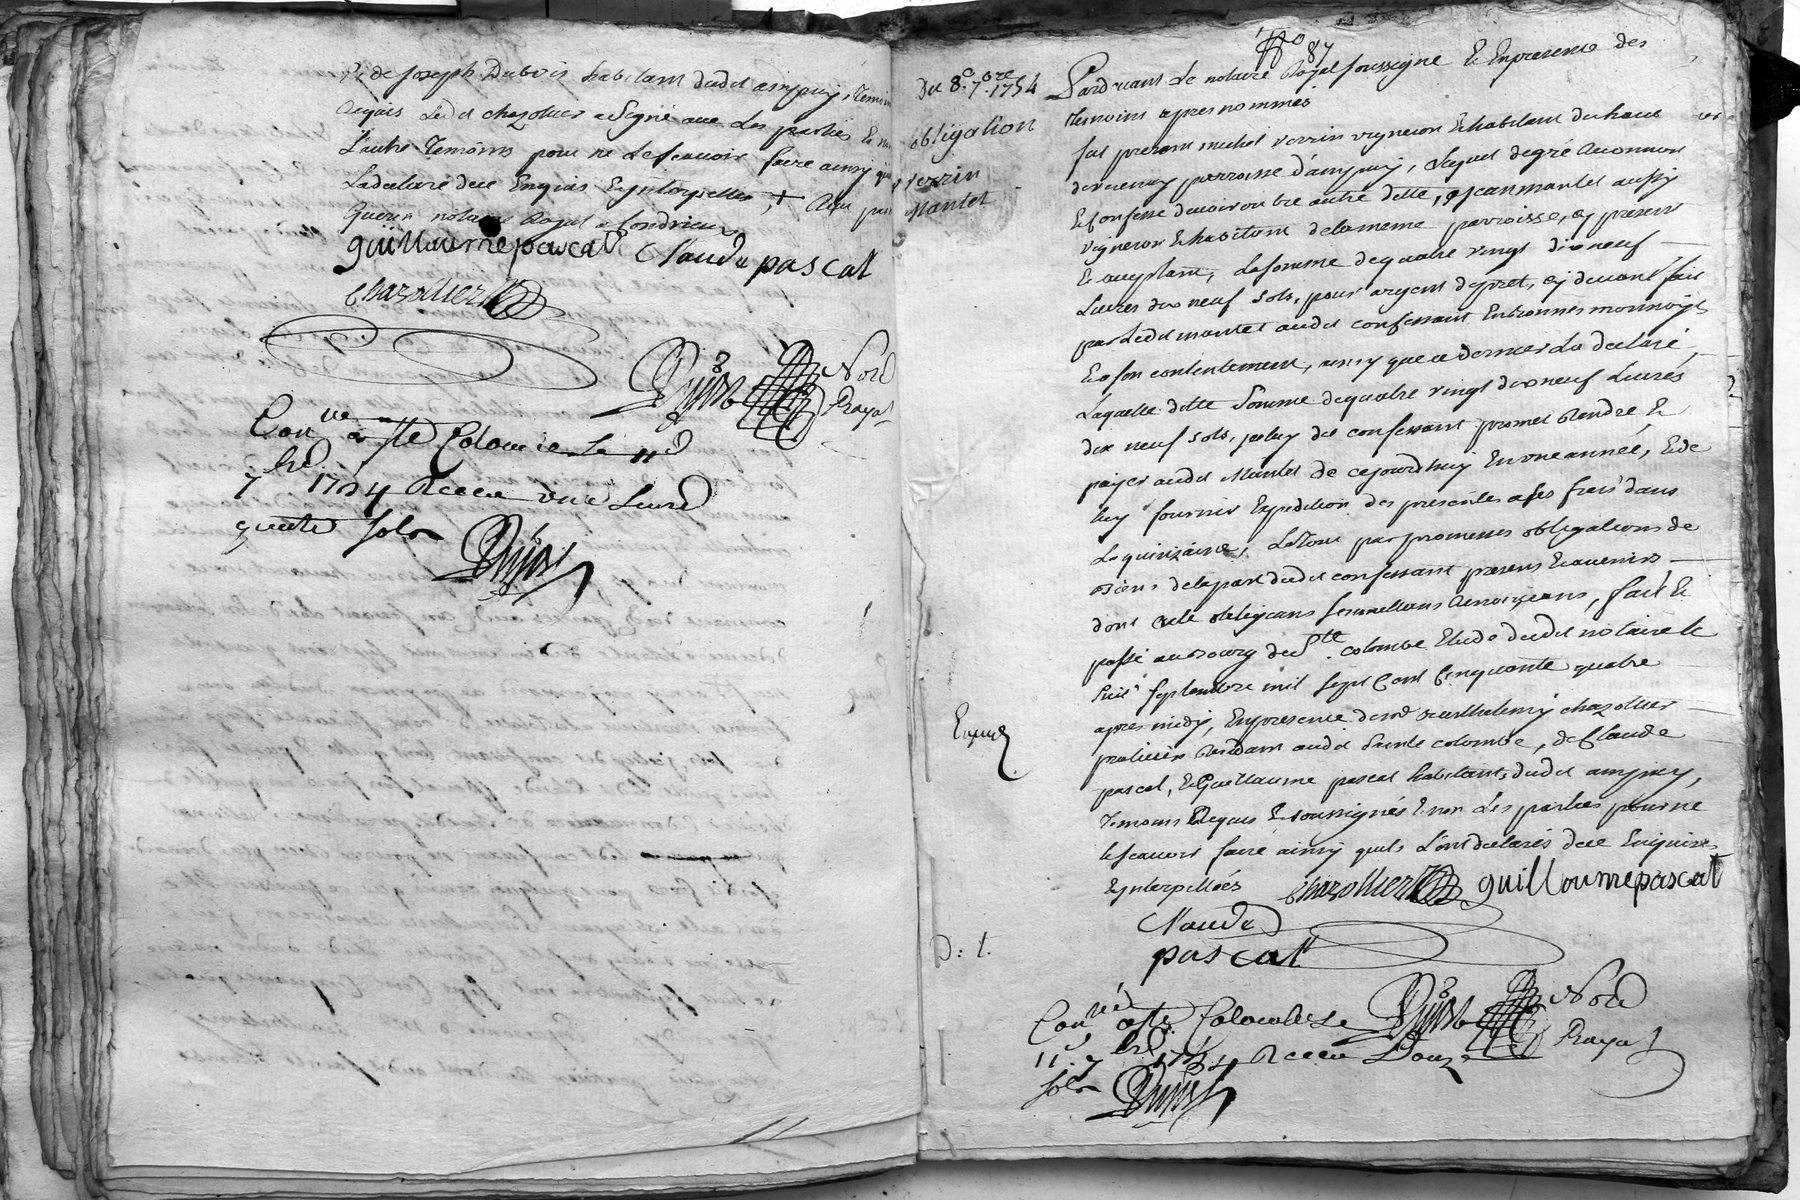 P. de Joseph Dubois habitant dudit ampuy, temoin
requis ledit chazottier a signé avec les parties et non
l'autre temoins pour ne le scavoir faire ainsy qu'il
la declaré de ce enquis et ynterpellés, + par
Guerin notaire Royal a Condrieux
guillaume pascal Claude pascal
Chazottier
Nore
Royal
Con.lle a Ste Colombe le 11e
7bre 1754 Receu une livre
quatre sols
No 87
Du 8e 7bre 1754
obligation
verrin
Mantel
Pardevant le notaire Royal soussigné et En presence des
temoins apres nommés
fut present michel verrin vigneron et habitant du haut
de verenay parroisse d'ampuy, lequel de gré a reconnu
et confessé devoir outre autre dette, a jean mantel aussy
vigneron et habitant de la meme parroisse, cy present
et acceptant, la somme de quatre vingt dix neuf
livres dix neuf sols, pour argent de pret, cy devant fait
par ledit mantel audit confessant En bonnes monnoyes
et a son contentement, ainsy que ce dernier l'a declaré
laquelle ditte somme de quatre vingt dix neuf livres
dix neuf sols, iceluy dit confessant promet Rendre et
payer audit Mantel de cejourdhuy En une année, et de
luy fournir Expedition des presentes a ses frais dans
la quinzaine, le tout par promesses obligations de
biens de la part dudit confessant presens et avenirs
dont acte obligeans soumettans Renonçeans, fait et
passé au Bourg de Ste colombe Etude dudit notaire le
huit septembre mil sept Cent Cinquante quatre
apres midy, En presence de me barthelemy chazottier
praticien Residant audit Sainte colombe, de Claude
pascal, et Guillaume pascal habitants dudit ampuy,
temoins Requis et soussignés et non les parties pour ne
le scavoir faire ainsy quils l'ont declarés de ce Enquises
et ynterpellées Chazottier guillaume pascal
Claude
pascal
Expedié
D: 1.
Nore
Royal
Con.lé a Ste Colombe le
11e 7bre 1754 Receu Douze
sols